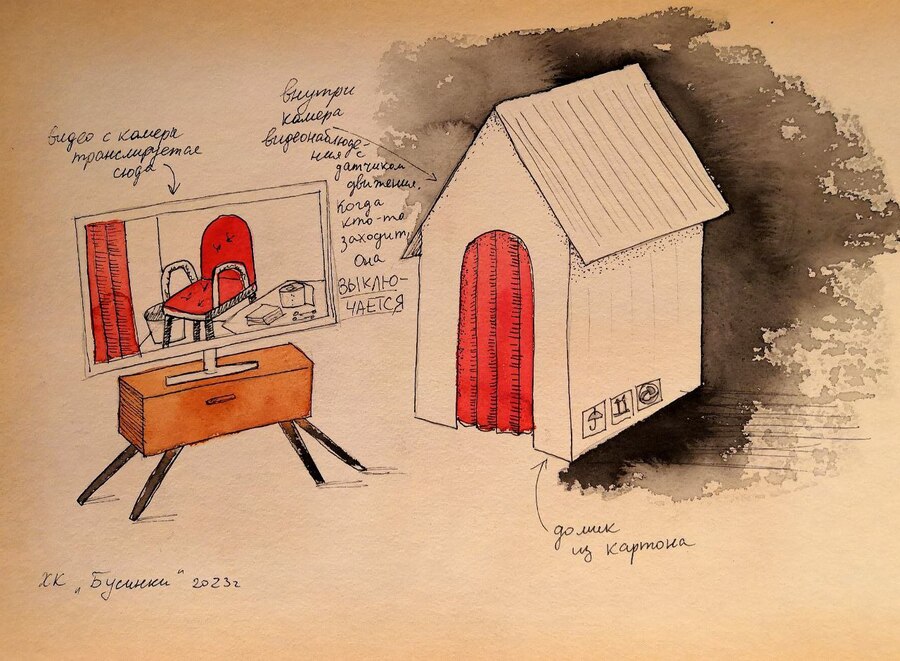 видео с камеры
транслируется
сюда
внутри
камера
видеонаблюде-
ния с
датчиком
движения.
Когда
кто-то
заходит,
Она
ВЫКЛЮ-
ЧАЕТСЯ
домик
из картона
ХК „Бусинки“ 2023г